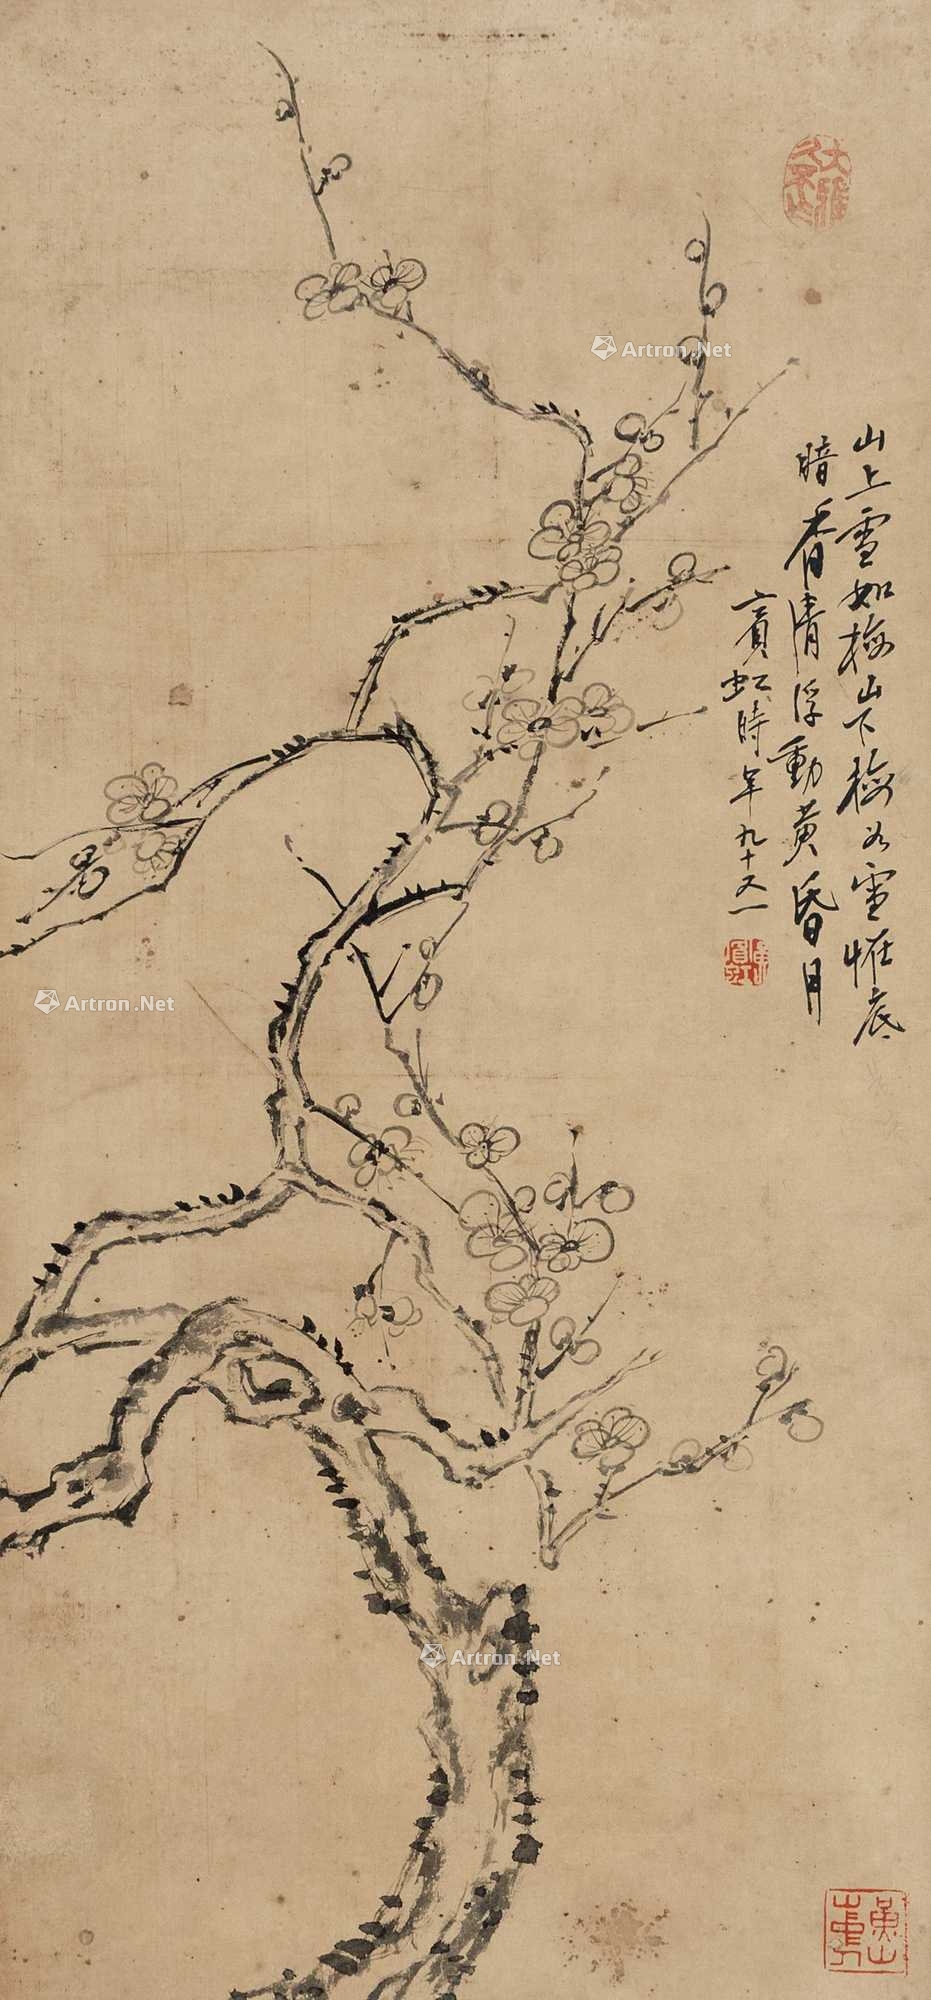 山上雪如梅山下梅如雪恠底
暗香清浮動黃昏月
賓虹時年九十又一
大雅
Artron.Net
Artron.Net
Artron.Net
黃山